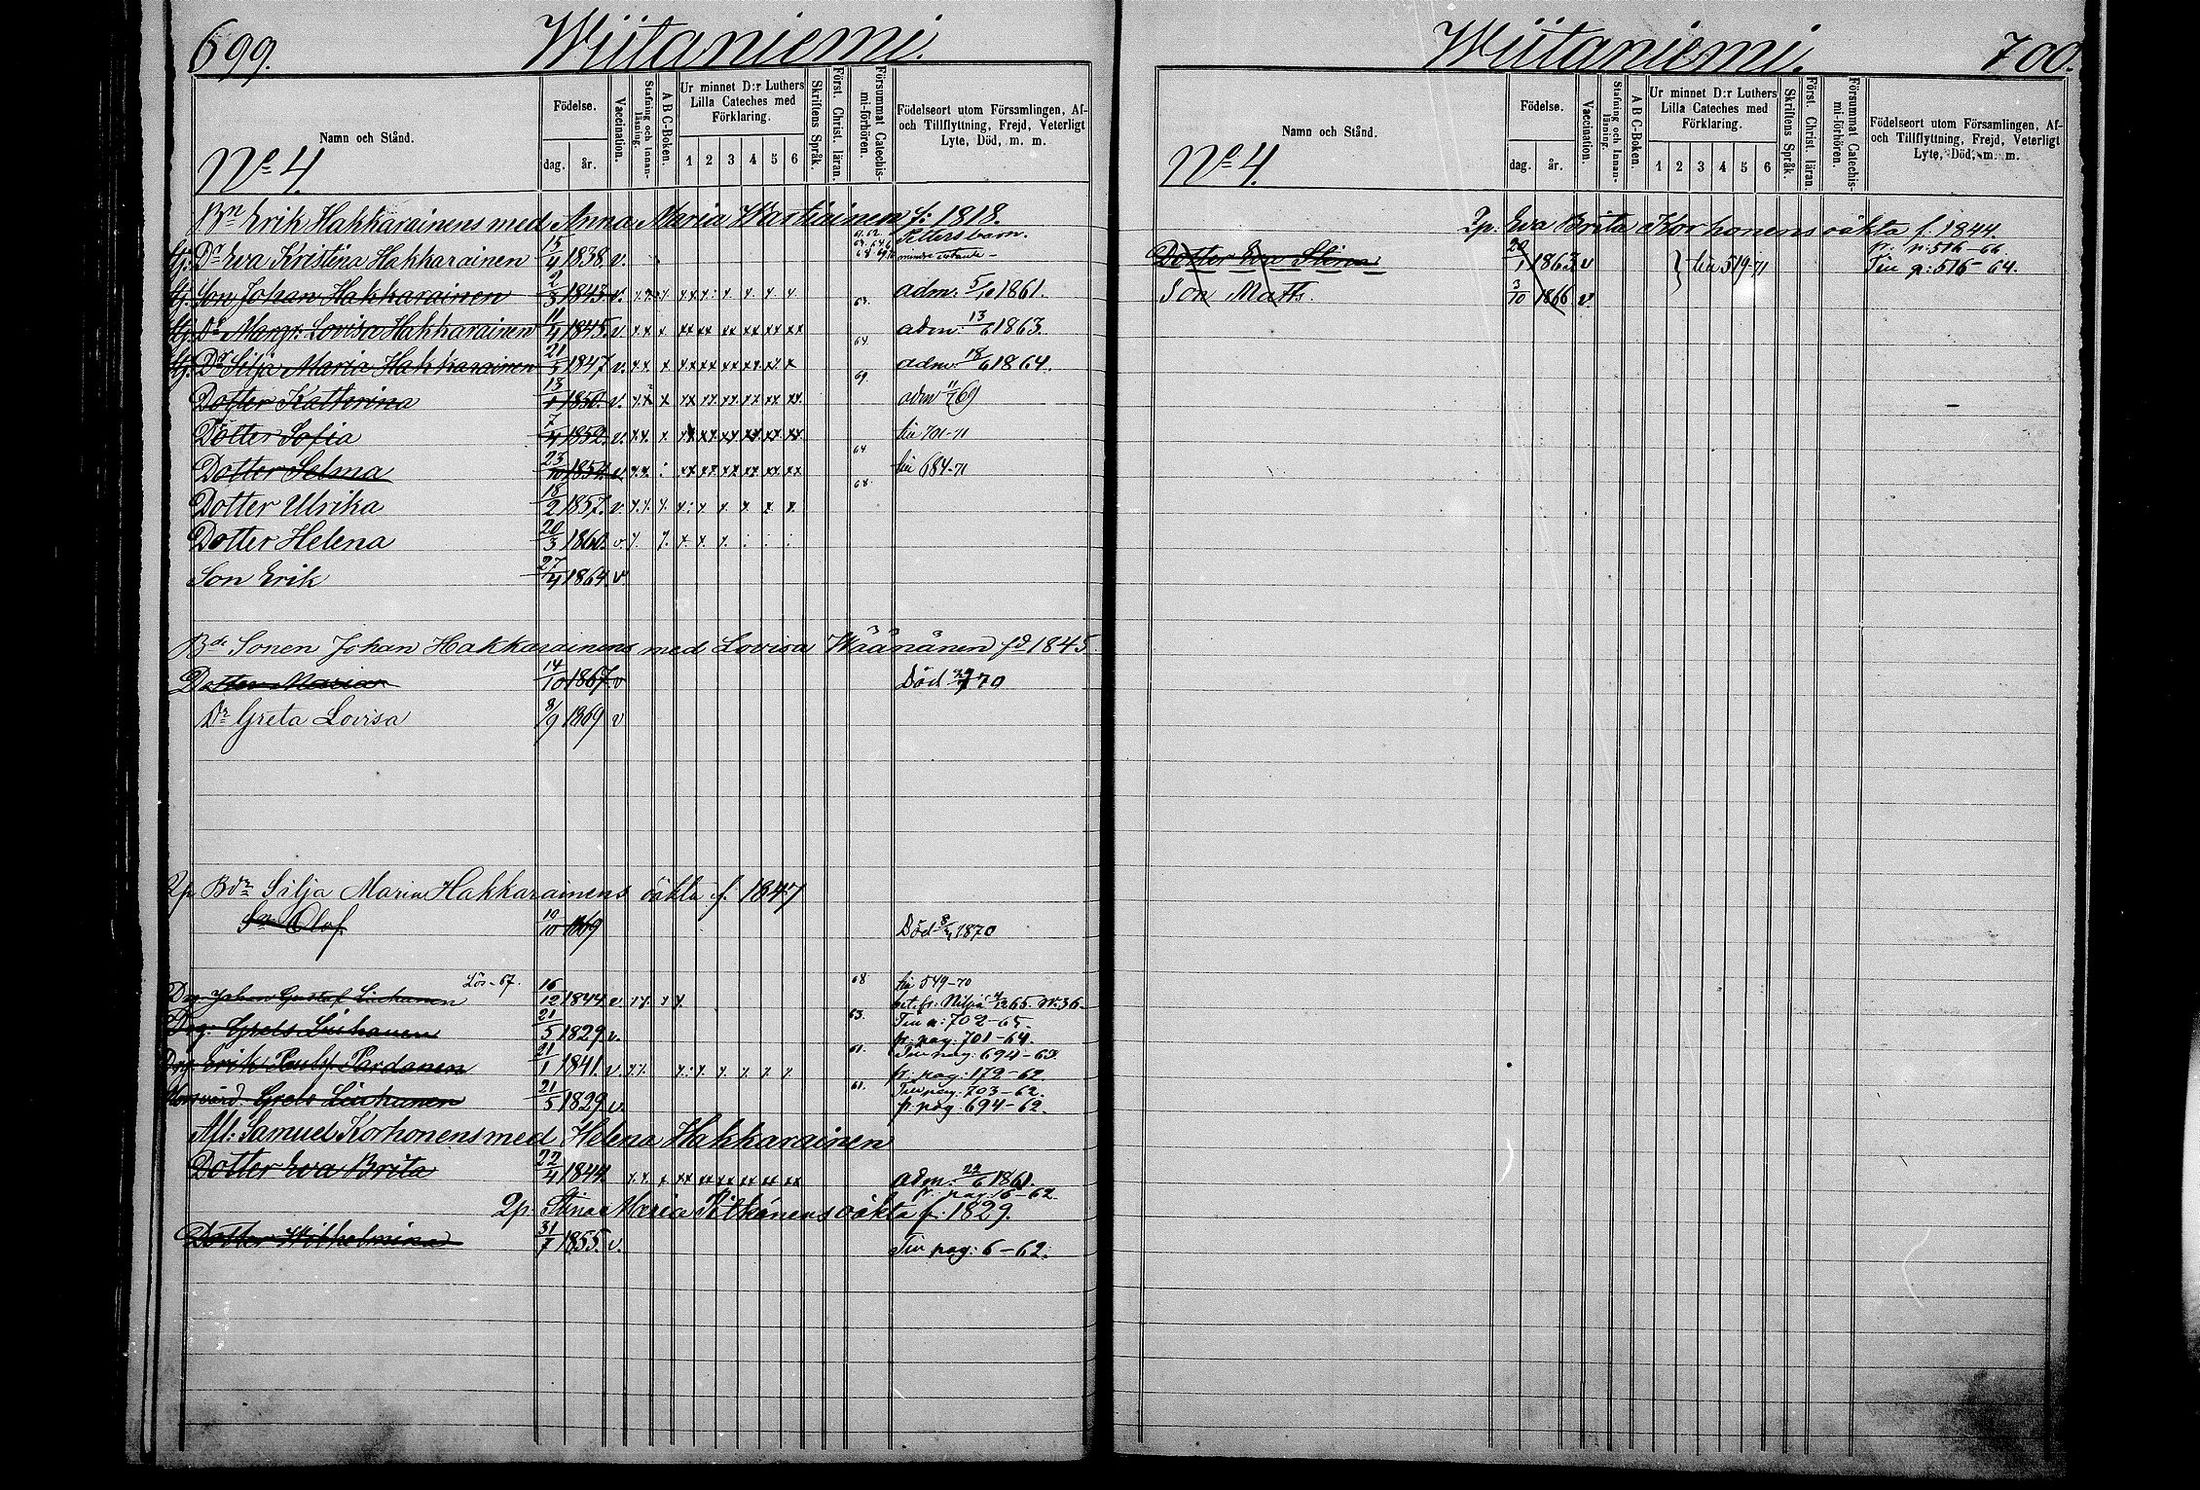 699.
Wiitaniemi.
Namn och Stånd.
Födelse.
dag. år.
Vaccination.
Stafning och Innan-läsning.
A B C-Boken.
Ur minnet D:r Luthers Lilla Cateches med Förklaring.
1 2 3 4 5 6
Skriftens Språk.
Först. Christ. läran.
Försummat Catechis-mi-förhören.
Födelseort utom Församlingen, Af- och Tillflyttning, Frejd, Veterligt Lyte, Död, m. m.
No 4.
Bn Erik Hakkarainens med Anna Maria Wartiainen f: 1818.
Dr Eva Kristina Hakkarainen 15/4 1838. v.
Son Johan Hakkarainen 2/3 1843. v. 63. adm. 5/10 1861.
Dr Margr. Lovisa Hakkarainen 11/4 1845. v. adm. 13/6 1863.
Dr Silja Maria Hakkarainen 21/5 1847. v. 64. adm. 18/6 1864.
Dotter Katharina 13/1 1850. v. 69. adm 11/7 69
Dotter Sofia 7/4 1852. v. till 701-71
Dotter Selma 23/10 1854. v. 64 till 684-71
Dotter Ulrika 18/2 1857. v. 68.
Dotter Helena 20/3 1860. v.
Son Erik 27/4 1864. v
Bd Sonen Johan Hakkarainens med Lovisa Wäänänen fd 1845.
Dotter Maria 14/10 1867. v Död 70
Dr Greta Lovisa 8/9 1869 v
2p. Bdr Silja Maria Hakkarainens oäkta f. 1847
Sn Olof 10/10 1869 Död 8/4 1870
Lös-67.
Drg. Johan Gustaf Liukonen 16/12 1844. v. 68 till 549-70
bet. fr. Nilsiä 65. No 36.
Drg. Grels Liukonen 21/5 1829. v. 63. Till p: 702-65.
fr. pag: 701-64.
Drg. Erik Pardanen 21/1 1841. v. 61. Till pag: 694-63.
fr. pag: 179-62.
Grels Liukonen 21/5 1829 v. 61. Till pag: 703-62.
fr. pag 694-62.
Afl: Samuel Korhonens med Helena Hakkarainen
Dotter Eva Brita 22/4 1844. adm. 22/6 1861.
fr: pag: 6-62
2p. Stina Maria Pitkänens oäkta f: 1829.
Dotter Wilhelmina 31/7 1855. v. Till pag: 6-62.
Wiitaniemi.
700.
Namn och Stånd.
Födelse.
dag. år.
Vaccination.
Stafning och Innan-läsning.
A B C-Boken.
Ur minnet D:r Luthers Lilla Cateches med Förklaring.
1 2 3 4 5 6
Skriftens Språk.
Först. Christ. läran.
Försummat Catechis-mi-förhören.
Födelseort utom Församlingen, Af- och Tillflyttning, Frejd, Veterligt Lyte, Död, m. m.
No 4.
2p. Eva Brita Korhonens oäkta f. 1844.
fr. p: 516-66
Dotter Eva Stina 20/1 1863 v till 519-71 Till p: 516-64.
Son Matts. 3/10 1866 v